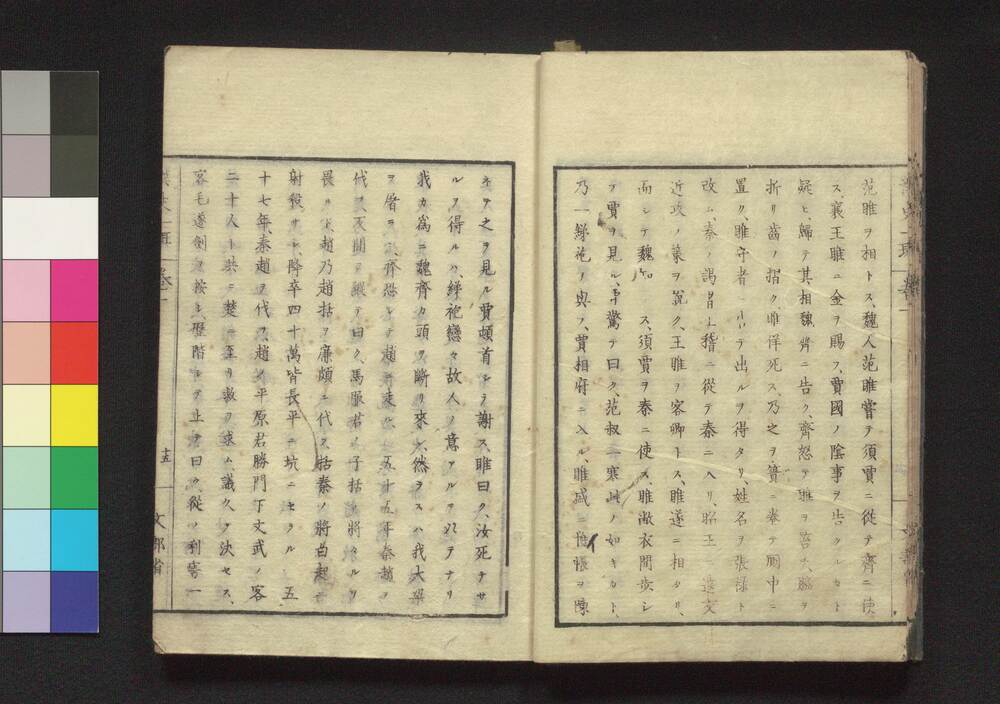 范雎ヲ相トス、魏人范雎嘗テ須賈ニ從テ齊ニ使
ス、襄王雎ニ金ヲ賜フ、賈國ノ陰事ヲ告クルカト
疑ヒ、歸テ其相魏齊ニ告ク、齊怒テ雎ヲ笞チ、脇ヲ
折リ齒ヲ摺ク、雎佯死ス、乃之ヲ簀ニ卷テ厠中ニ
置ク、雎守者ニ テ出ルヲ得タリ、姓名ヲ張祿ト
改ム、秦ノ謁者王稽ニ從テ秦ニ入リ、昭王ニ遠交
近攻ノ策ヲ説ク、王雎ヲ客卿トス、雎遂ニ相タリ、
而シテ魏知 ス、須賈ヲ秦ニ使ス、雎敝衣間歩シ
テ賈ヲ見ル、賈驚テ曰ク、范叔一寒此ノ如キカト、
乃一綈袍ヲ與フ、賈相府ニ入ル、雎盛ニ帷帳ヲ陳
ネテ之ヲ見ル、賈頓首シテ謝ス、雎曰ク、汝死ナサ
ルヲ得ルハ、綈袍戀々故人ノ意アルヲ以テナリ
我カ為ニ魏齊カ頭ヲ斷リ來レ、然ラスハ我大梁
ヲ屠ラン、齊恐レテ趙ニ走ル、五十五年秦趙ヲ
伐ツ、反間ヲ縱テ曰ク、馬服君ノ子括將タルヲ
畏ルト、趙乃趙括ヲ廉頗ニ代フ、括秦ノ將白起ニ
射殺サレ、降卒四十萬皆長平ニ坑ニセラル、五
十七年、秦趙ヲ伐ツ、趙ノ平原君勝門下文武ノ客
二十人ト共ニ楚ニ至リ救ヲ求ム、議久ク決セス、
客毛遂劍ヲ按シ、歴階シテ上テ曰ク、從ノ利害一
十五
文部省